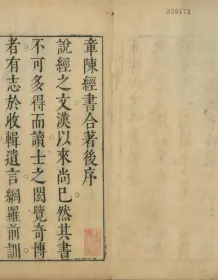 339472
章陳經書合著後序
說經之文漢以來尚已然其書
不可多得而讀士之閎覽奇博
者有志於收輯遺言網羅前訓